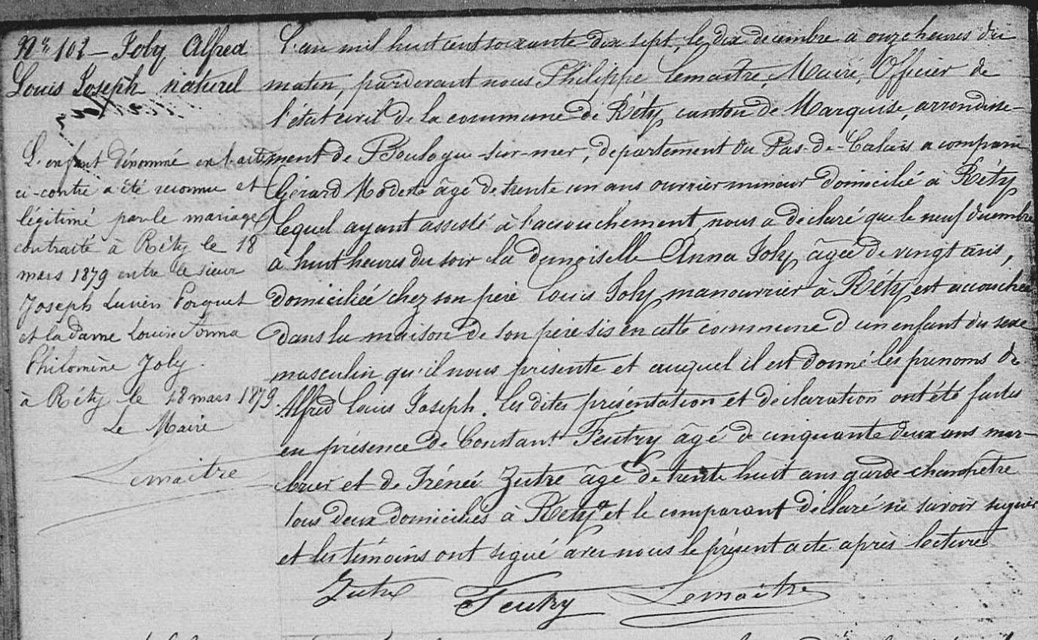 Nº 102 - Joly Alfred
Louis Joseph naturel
L'enfant dénommé en l'acte
ci-contre a été reconnu et
légitimé par le mariage
contracté à Réty le 18
mars 1879 entre le sieur
Joseph Lucien Porquet
et la dame Louise
Philomène Joly.
à Réty le 18 mars 1879
Le Maire
Lemaitre
L'an mil huit cent soixante dix sept, le dix décembre à onze heures du
matin, par devant nous Philippe Lemaitre, Maire, Officier de
l'état civil de la commune de Réty, canton de Marquise, arrondisse-
ment de Boulogne-sur-mer, département du Pas-de-Calais a comparu
Gérard Modeste âgé de trente un ans ouvrier mineur domicilié à Réty
lequel ayant assisté à l'accouchement, nous a déclaré que le neuf décembre
à huit heures du soir la demoiselle Anna Joly, âgée de vingt ans,
domiciliée chez son père Louis Joly manouvrier à Réty est accouchée
dans la maison de son père sis en cette commune d'un enfant du sexe
masculin qu'il nous présente et auquel il est donné les prénoms de
Alfred Louis Joseph. Les dites présentation et déclaration ont été faites
en présence de Constant Feutry âgé de cinquante deux ans mar-
brier et de Irénée Zutre âgé de trente huit ans garde champêtre
tous deux domiciliés à Réty et le comparant déclaré ne savoir signer
et les témoins ont signé avec nous le présent acte après lecture
Zutre Feutry Lemaitre